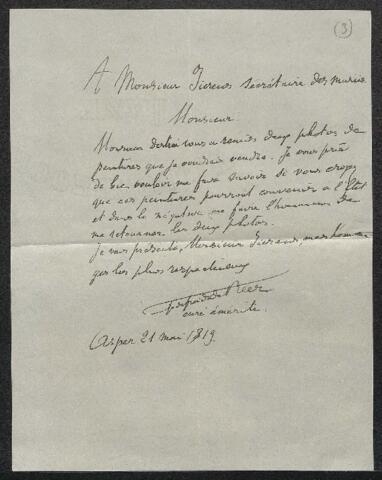 (3)
A Monsieur Fierens secrétaire des musées
Monsieur
Monsieur vous a remis deux photos de
peintures que je voudrais vendre. Je vous prie
de bien vouloir me faire savoir si vous croyez
que ces peintures pourront convenir à l'Etat
et dans la négative me faire l'honneur de
me retourner les deux photos.
Je vous présente, Monsieur Fierens, mes homma-
ges les plus respectueux
curé émérite.
Asper 21 mai 1919